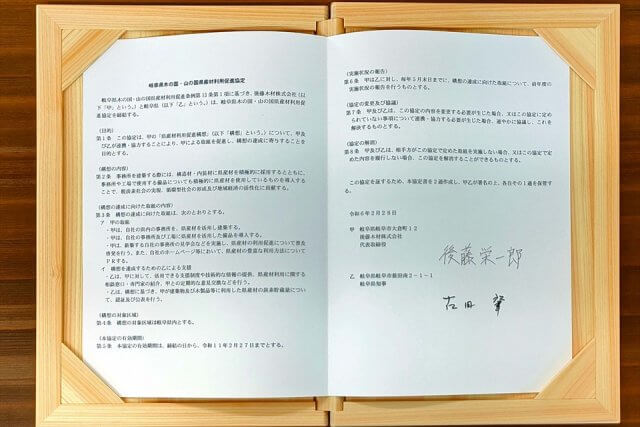 岐阜県木の国・山の国県産材利用促進協定
岐阜県木の国・山の国県産材利用促進条例第13条第1項に基づき、後藤木材株式会社(以
下「甲」という。)と岐阜県(以下「乙」という。)は、岐阜県木の国・山の国県産材利用促
進協定を締結する。
(目的)
第1条 この協定は、甲の「県産材利用促進構想」(以下「構想」という。)について、甲及
び乙が連携・協力することにより、甲による取組を促進し、構想の達成に寄与することを
目的とする。
(構想の内容)
第2条 事務所を建築する際には、構造材・内装材に県産材を積極的に採用するとともに、
事務所や工場で使用する備品についても積極的に県産材を使用しているものを導入するこ
とで、脱炭素社会の実現、循環型社会の形成及び地域経済の活性化に貢献する。
(構想の達成に向けた取組の内容)
第3条 構想の達成に向けた取組は、次のとおりとする。
ア 甲の取組
・甲は、自社の県内の事務所を、県産材を活用し建築する。
・甲は、自社の事務所及び工場に県産材を活用した備品を導入する。
・甲は、新築する自社事務所の見学会などを実施し、県産材の利用促進について普及
啓発を行う。また、自社のホームページ等において、県産材の豊富な利用方法について
PRする。
イ 構想を達成するための乙による支援
・乙は、甲に対して、活用できる支援制度や技術的な情報の提供、県産材利用に関する
相談窓口・専門家の紹介、甲との定期的な意見交換などを行う。
・乙は、構想に基づき、甲が建築物及び木製品等に利用した県産材の炭素貯蔵量につい
て、認証及び公表を行う。
(構想の対象区域)
第4条 構想の対象区域は岐阜県内とする。
(本協定の有効期間)
第5条 本協定の有効期間は、締結の日から、令和11年2月27日までとする。
(実施状況の報告)
第6条 甲は乙に対し、毎年5月末日までに、構想の達成に向けた取組について、前年度の
実施状況の報告を行うものとする。
(協定の変更及び協議)
第7条 甲及び乙は、この協定の内容を変更する必要が生じた場合、又はこの協定に定め
られていない事項について連携・協力する必要が生じた場合、速やかに協議し、これを
解決するものとする。
(協定の解消)
第8条 甲及び乙は、相手方がこの協定で定めた取組を実施しない場合、又はこの協定で定
めた内容を履行しない場合、この協定を解消することができるものとする。
この協定を証するため、本協定書を2通作成し、甲乙が署名の上、各自その1通を保管す
る。
令和6年2月28日
甲 岐阜県岐阜市大倉町12
後藤木材株式会社
代表取締役
後藤栄一郎
乙 岐阜県岐阜市薮田南2-1-1
岐阜県知事
古田 肇